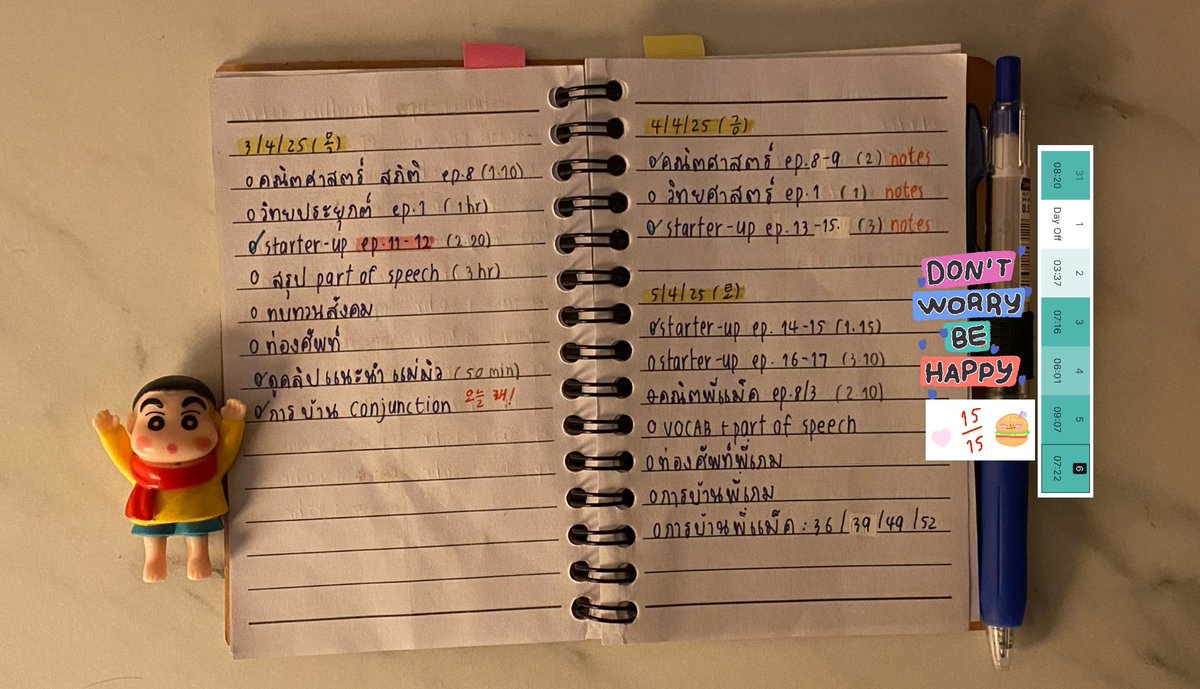 3/4/25 (목)
คณิตศาสตร์ สถิติ ep.8 (1.10)
วิทยประยุกต์ ep.1 (1hr)
starter-up ep.11-12 (2.20)
สรุป part of speech (3hr)
ทบทวนสังคม
ท่องศัพท์
ดูคลิปแนะนำ แม่มิว (50 min)
การบ้าน conjunction 오늘
4/4/25 (금)
คณิตศาสตร์ ep.8-9 (2) notes
วิทยศาสตร์ ep.1 (1) notes
starter-up ep.13-15. (3) notes
5/4/25 (토)
starter-up ep.14-15 (1.15)
starter-up ep.16-17 (3.10)
คณิตพี่แม็ค ep.8/3 (2.10)
VOCAB + part of speech
ท่องศัพท์พี่เกม
การบ้านพี่เกม
การบ้านพี่แม็ค : 36/39/49/52
DON'T
WORRY
BE
HAPPY
15
15
31 08:20
1 Day Off
2 03:37
3 07:16
4 06:01
5 09:07
6 07:22